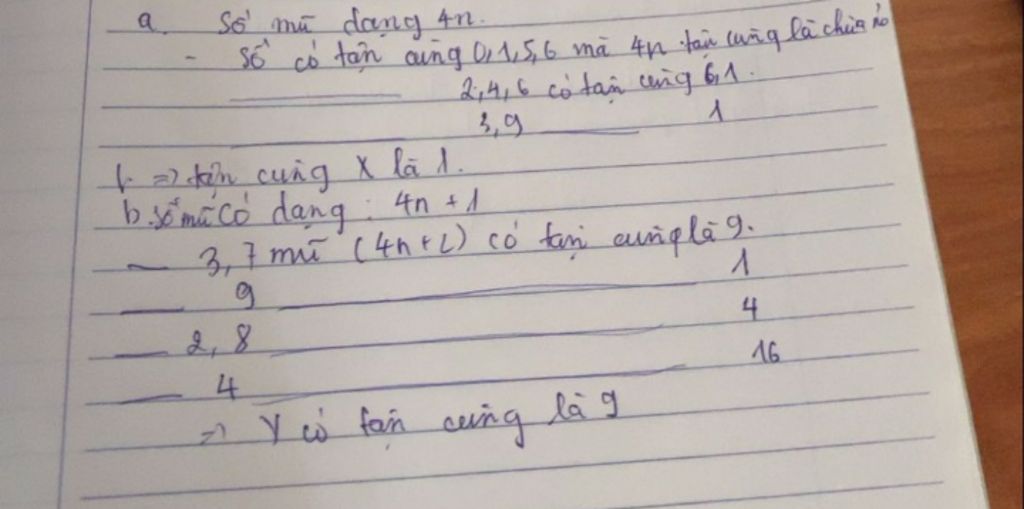 a. Số mũ dạng 4n.
- Số có tận cùng 0,1,5,6 mũ 4n tận cùng là chính nó
2,4,6 có tận cùng 6,1.
3,9 1
=> tận cùng X là 1.
b. Số mũ có dạng: 4n + 1
- 3,7 mũ (4n+2) có tận cùng là 9.
- 9 1
- 2,8 4
- 4 16
=> Y có tận cùng là 9